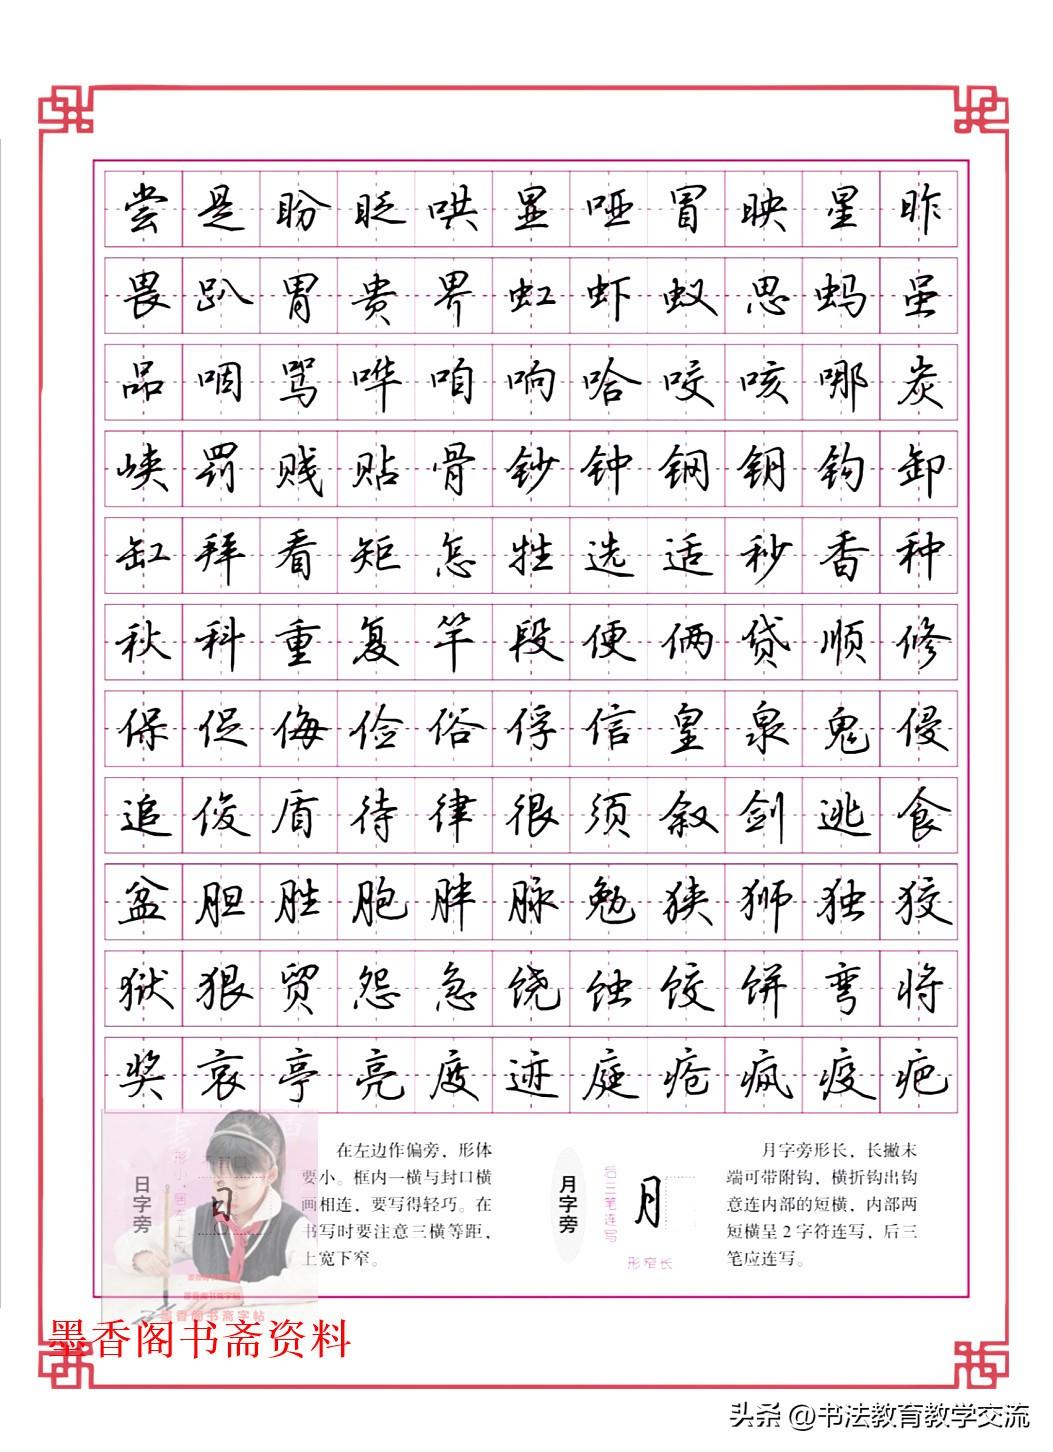 尝是盼眨哄显哑冒映星昨
畏趴胃贵界虹虾蚁思蚂虽
品咽骂哗咱响哈咬咳哪炭
峡罚贱贴骨钞钟钢钥钩卸
缸拜看矩怎牲选适秒香种
秋科重复竿段便俩贷顺修
保促侮俭俗俘信皇泉鬼侵
追俊盾待律很须叙剑逃食
盆胆胜胞胖脉勉狭狮独狡
狱狠贸怨急饶蚀饺饼弯将
奖哀亭亮度迹庭疮疯疫疤
日字旁
日
在左边作偏旁，形体
要小。框内一横与封口横
画相连，要写得轻巧。在
书写时要注意三横等距，
上宽下窄。
月字旁
后三笔连写
月
形窄长
月字旁形长，长撇末
端可带附钩，横折钩出钩
意连内部的短横，内部两
短横呈2字符连写，后三
笔应连写。
墨香阁书斋字帖
墨香阁书斋资料
头条@书法教育教学交流